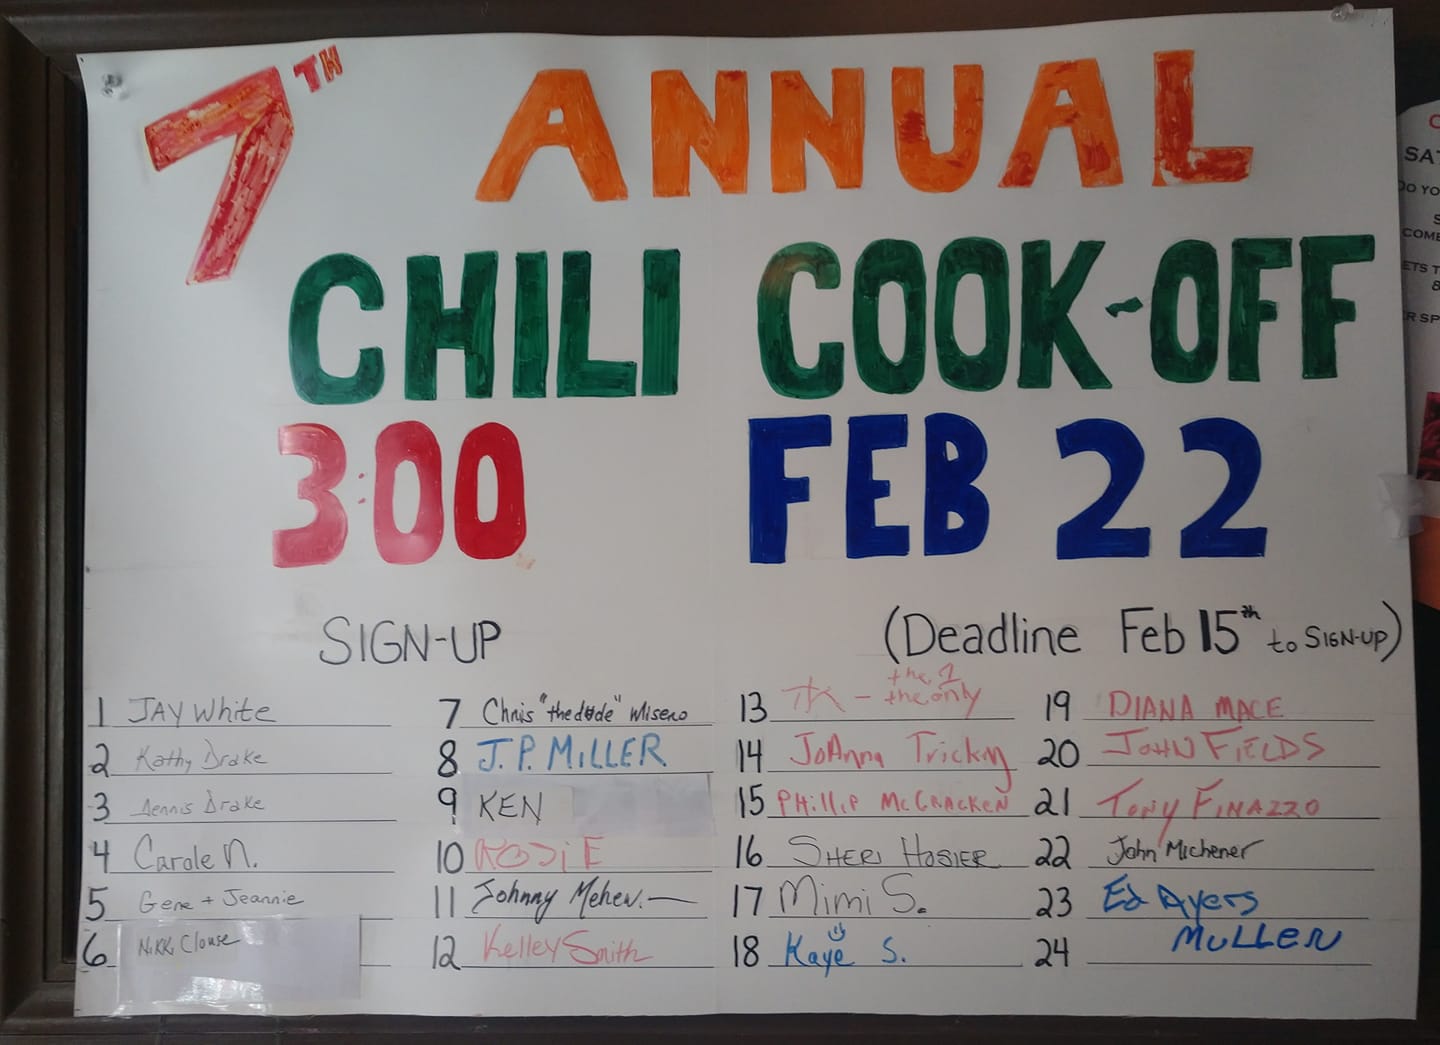 7TH ANNUAL
CHILI COOK-OFF
3:00 FEB 22
SIGN-UP
(Deadline Feb 15th to SIGN-UP)
1 JAY White
2 Kathy Drake
3 Dennis Drake
4 Carole N.
5 Gene + Jeannie
6 Nikki Clouse
7 Chris "the dude" Misero
8 J.P. MILLER
9 KEN
10 ROSiE
11 Johnny
12 Kelley Smith
13 - the 1
the only
14 JoAnna
15 PHILLIP McCRACKEN
16 SHERI HOSIER
17 Mimi S.
18 Kaye S.
19 DIANA MACE
20 JOHN FIELDS
21 TONY FINAZZO
22 John Michener
23 Ed Ayers
24 MULLEN
SAT
COME